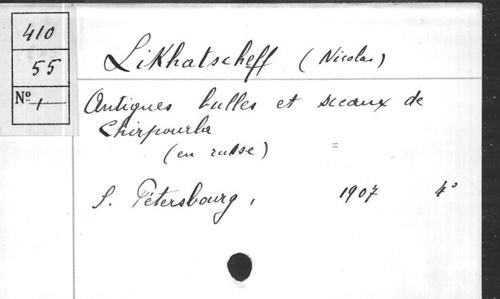 410
55
Nº 1
Likhatscheff (Nicolas)
Antiques bulles et sceaux de
Chirpourla
(en russe) =
S. Pétersbourg, 1907 4°